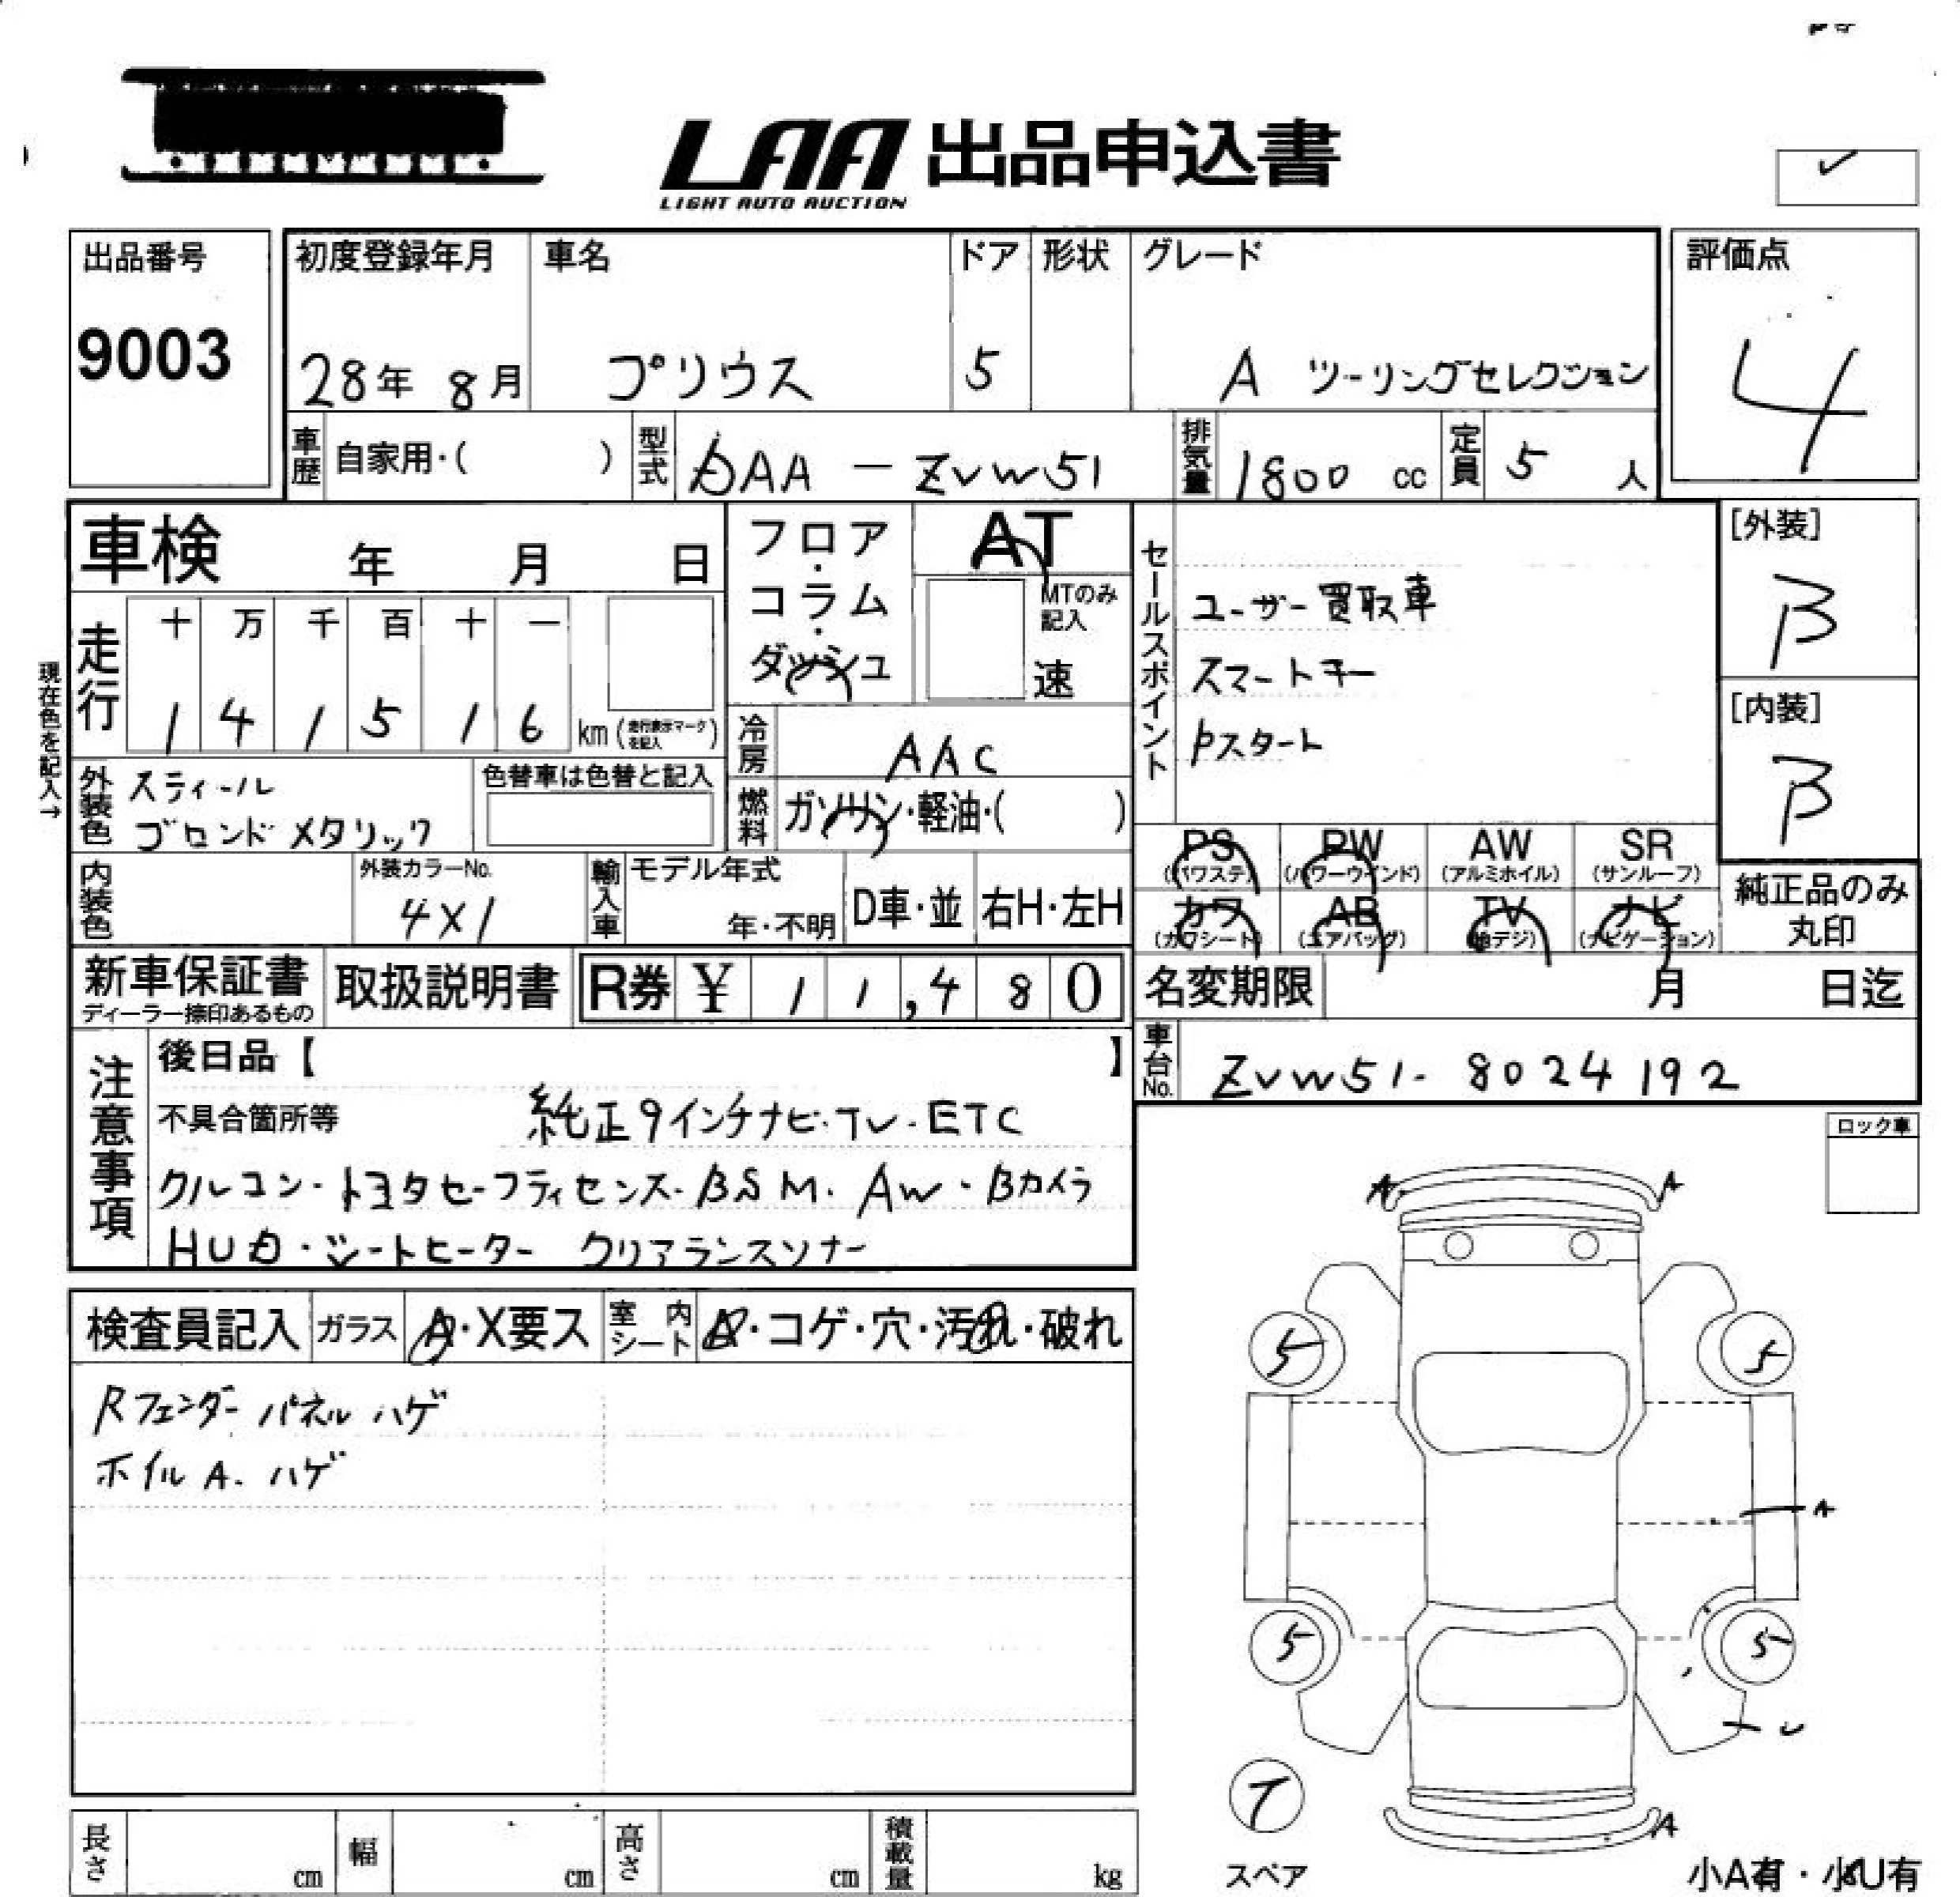 LAA 出品申込書
LIGHT AUTO AUCTION
出品番号
9003
初度登録年月
28年 8月
車名
プリウス
ドア
5
形状
グレード
A ツーリングセレクション
評価点
4
車歴
自家用・( )
型式
DAA-ZVW51
排気量
1800 cc
定員
5 人
車検 年 月 日
フロア・コラム・ダッシュ
AT
MTのみ記入
速
セールスポイント
ユーザー買取車
スマートキー
Pスタート
[外装]
B
[内装]
B
現在色を記入→
走行
十 万 千 百 十 一
1 4 1 5 1 6 km (走行表示マークを記入)
冷房
AAC
燃料
ガソリン・軽油・( )
外装色
スティール
ブロンドメタリック
色替車は色替と記入
内装色
外装カラーNo.
4X1
輸入車
モデル年式
年・不明
D車・並
右H・左H
PS
(パワステ)
PW
(パワーウインド)
AW
(アルミホイル)
SR
(サンルーフ)
カワ
(カワシート)
AB
(エアバッグ)
TV
(地デジ)
ナビ
(ナビゲーション)
純正品のみ
丸印
新車保証書
ディーラー捺印あるもの
取扱説明書
R券 ¥ 11,480
名変期限 月 日迄
車台No.
ZVW51-8024192
注意事項
後日品【 】
不具合箇所等 純正9インチナビ・TV・ETC
クルコン・トヨタセーフティセンス・BSM・AW・Bカメラ
HUD・シートヒーター クリアランスソナー
ロック車
検査員記入
ガラス
A・X要ス
室内シート
A・コゲ・穴・汚れ・破れ
Rフェンダーパネルハゲ
ホイルA.ハゲ
A A
5 5
A
5 5
T
スペア
A
長さ cm
幅 cm
高さ cm
積載量 kg
小A有・小U有